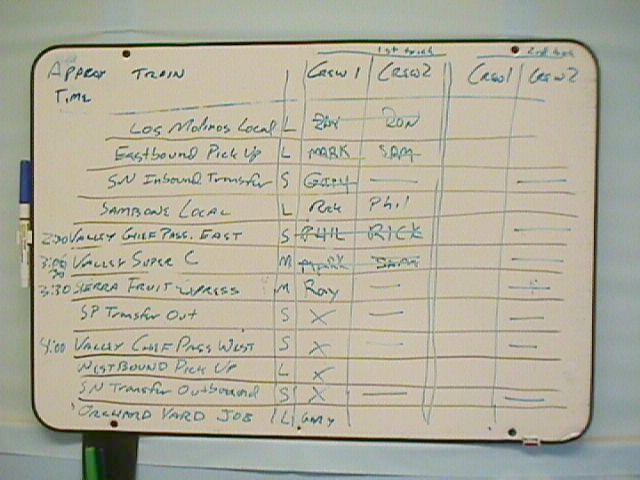 1st trick 2nd trick
Approx Train Crew 1 Crew 2 Crew 1 Crew 2
Time
Los Molinos Local L Ray Ron
Eastbound Pick Up L Mark Sam
SN Inbound Transfer S Gary —
Sambone Local L Rick Phil
2:30 Valley Chief Pass. East S Phil Rick —
3:00 Valley Super C M Mark Sam —
3:30 Sierra Fruit Express M Ray — —
SP Transfer Out S X — —
4:00 Valley Chief Pass West S X — —
Westbound Pick Up L X
SN Transfer Outbound S X — —
Orchard Yard Job L Gary